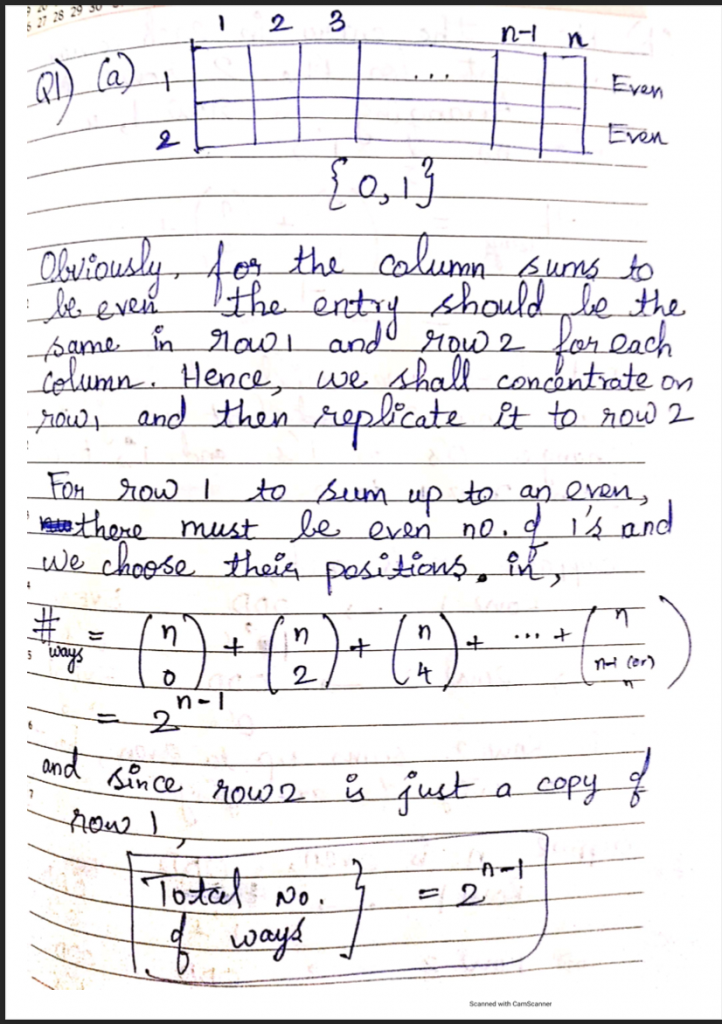 27 28 29 30
1 2 3 n-1 n
Q1) (a) 1 ... Even
2 Even
{0,1}
Obviously, for the column sums to
be even the entry should be the
same in row 1 and row 2 for each
column. Hence, we shall concentrate on
row 1 and then replicate it to row 2
For row 1 to sum up to an even,
there must be even no. of 1's and
we choose their positions. in,
# ways = (n 0) + (n 2) + (n 4) + ... + (n n-1 (or) n)
= 2^{n-1}
and since row 2 is just a copy of
row 1,
Total No. of ways } = 2^{n-1}
Scanned with CamScanner